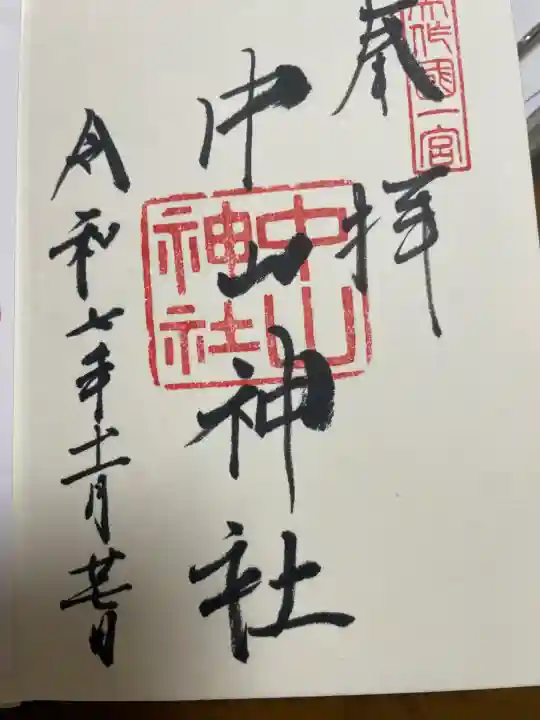 奉拝
作國一宮
中山神社
中山
神社
令和七年十一月廿七日